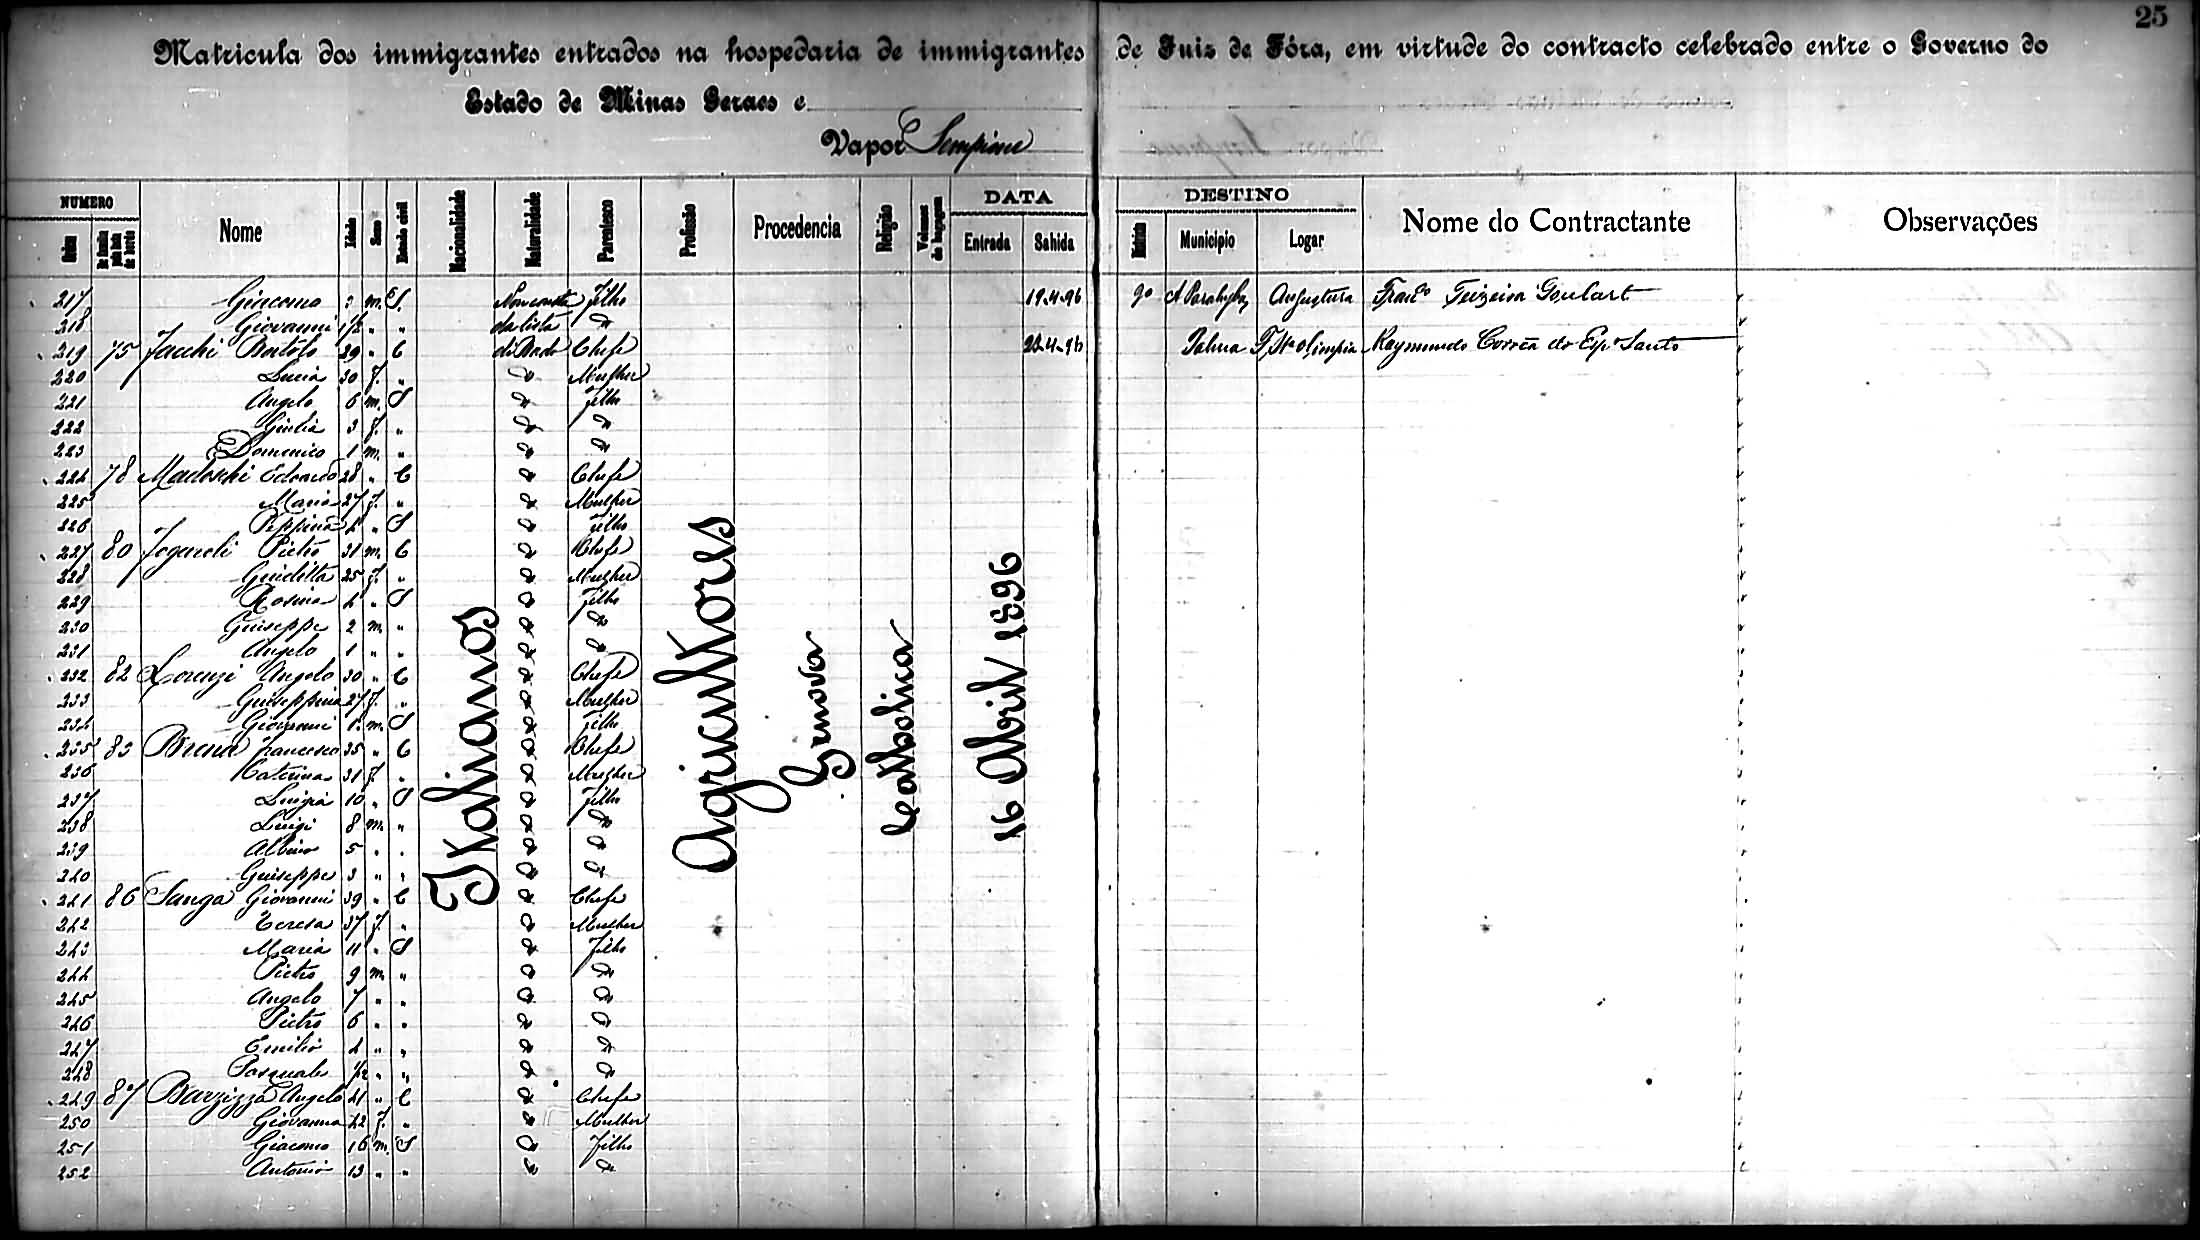 25
Matricula dos immigrantes entrados na hospedaria de immigrantes de Juiz de Fóra, em virtude do contracto celebrado entre o Governo do
Estado de Minas Geraes e
Vapor Sempione
NUMERO DATA DESTINO
Nome Idade Sexo Estado civil Nacionalidade Naturalidade Parentesco Profissão Procedencia Religião Volumes de bagagem Entrada Sahida Municipio Logar Nome do Contractante Observações
217 Giacomo 3 m. S. Non consta Filho 19-4-96 go Angustura Franco Teixeira Goulart
218 Giovanni 1/2 " " da lista "
219 75 Bortolo 29 " C di Bordo Chefe 22-4-96 Palma Raymundo Corrêa do Espo Santo
220 Lucia 30 f. " " Mulher
221 Angelo 6 m. S " Filho
222 Giulia 3 f. " " "
223 Domenico 1 m. " " "
224 78 Edoardo 28 " C " Chefe
225 Maria 27 f. " " Mulher
226 Peppina 4 " S " Filho
227 80 Pietro 31 m. C " Chefe
228 Giuditta 25 f. " " Mulher
229 Rosina 4 " S " Filho
230 Guiseppe 2 m. " " "
231 Angelo 1 " " " "
232 82 Lorenzi Angelo 30 " C " Chefe
233 Guiseppina 27 f. " " Mulher
234 Giovanni m. S " Filho
235 83 Brena francesco 35 " C " Chefe
236 Catterina 31 f. " " Mulher
237 Luigia 10 " S " Filho
238 Luigi 8 m. " " "
239 Albino 5 " " " "
240 Guiseppe 3 " " " "
241 86 Sanga Giovanni 39 " C " Chefe
242 Teresa 37 f. " " Mulher
243 Maria 11 " S " Filho
244 Pietro 9 m. " " "
245 Angelo 7 " " " "
246 Pietro 6 " " " "
247 Emilio 4 " " " "
248 Pasquale 1/2 " " " "
249 87 Barzizza Angelo 41 " C " Chefe
250 Giovanna 42 f. " " Mulher
251 Giacomo 16 m. S " Filho
252 Antonio 13 " " " "
Italianos
Agricultores
Genova
Catholica
16 Abril 1896